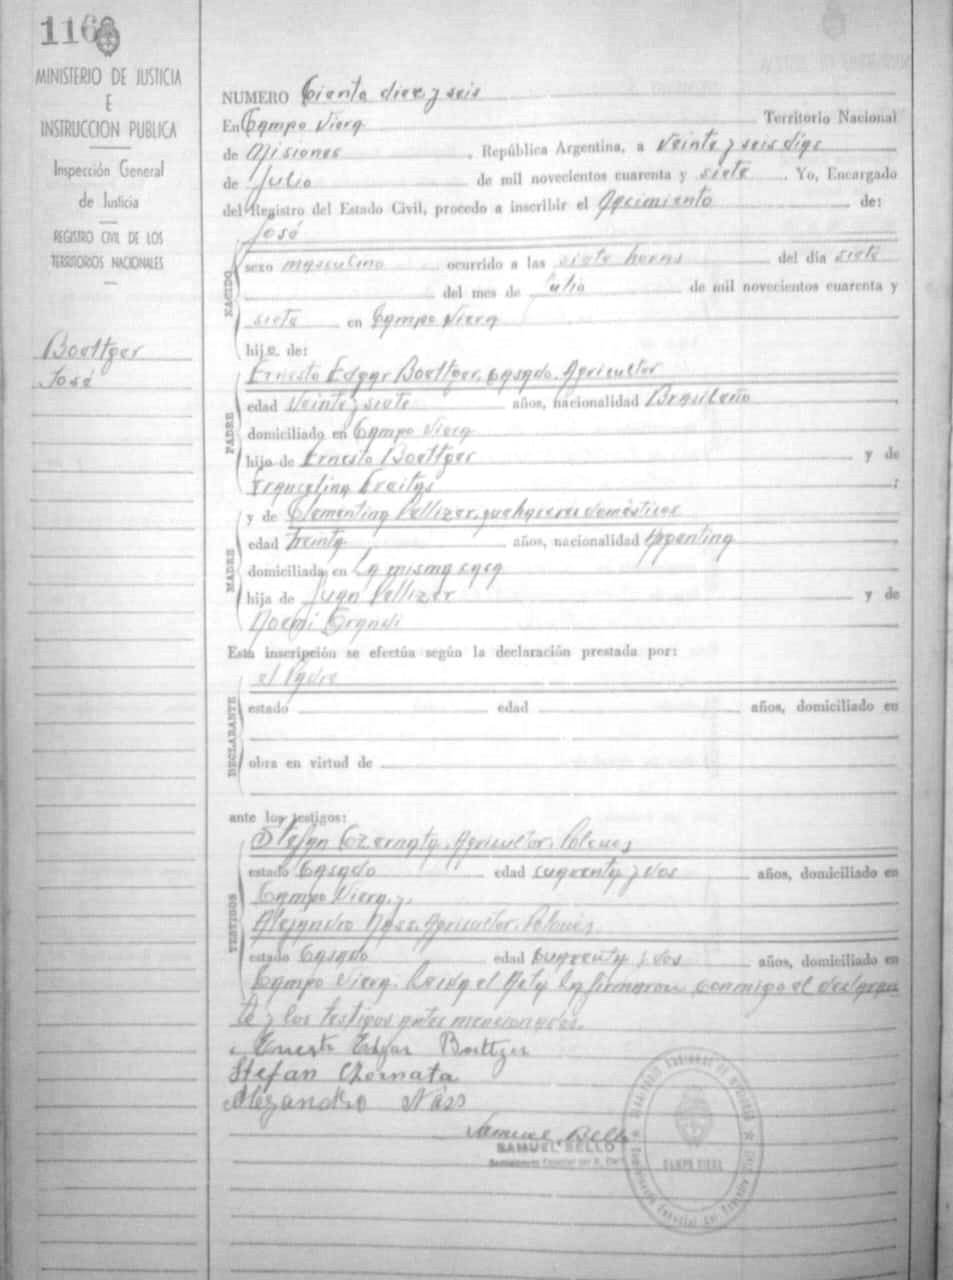 116
MINISTERIO DE JUSTICIA
E
INSTRUCCION PUBLICA
Inspección General
de Justicia
REGISTRO CIVIL DE LOS
TERRITORIOS NACIONALES
Boettger
José
NUMERO Ciento diez y seis
En Campo Viera Territorio Nacional
de Misiones, República Argentina, a veinte y seis días
de Julio de mil novecientos cuarenta y siete. Yo, Encargado
del Registro del Estado Civil, procedo a inscribir el Nacimiento de:
José
NACIDO
sexo masculino ocurrido a las siete horas del día siete
del mes de Julio de mil novecientos cuarenta y
siete en Campo Viera
hijo de:
PADRE
Ernesto Edgar Boettger, casado, Agricultor
edad veinte y siete años, nacionalidad Brasileño,
domiciliado en Campo Viera
hijo de Ernesto Boettger y de
Francelina Freitas;
MADRE
y de Clementina Pellizer, quehaceres domésticos
edad treinta, años, nacionalidad Argentina
domiciliada en La misma casa
hija de Juan Pellizer y de
Noemi Grandi
Esta inscripción se efectúa según la declaración prestada por:
el Padre
DECLARANTE
estado edad años, domiciliado en
obra en virtud de
ante los testigos:
TESTIGOS
Stefan Czernata, Agricultor, Polaco,
estado Casado edad cuarenta y dos años, domiciliado en
Campo Viera, y,
Alejandro Nass, Agricultor, Polaco,
estado Casado edad cuarenta y dos años, domiciliado en
Campo Viera. Leida el Acta la firmaron conmigo el declaran
te y los testigos antes mencionados.
Ernesto Edgar Boettger
Stefan Chernata
Alejandro Näss
Samuel Bello
SAMUEL BELLO
CAMPO VIERA